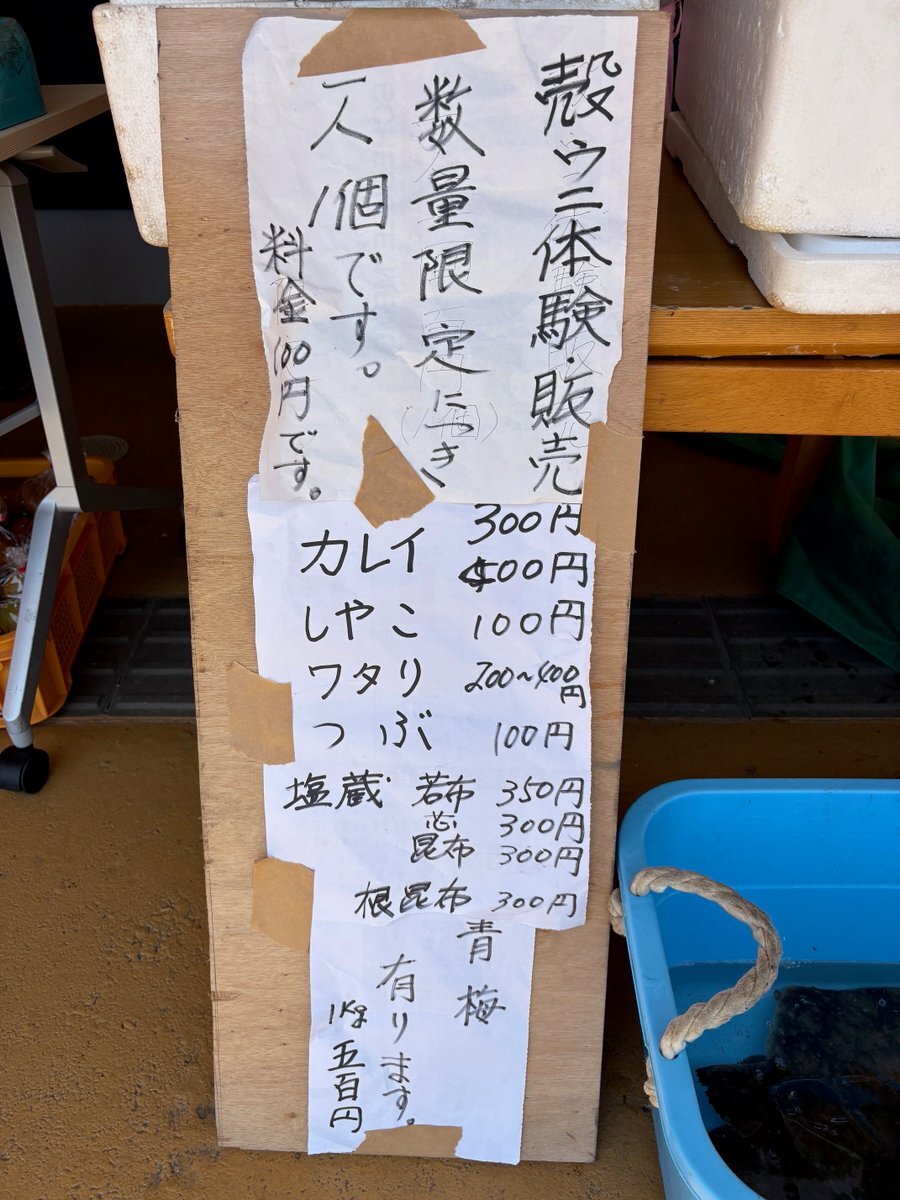 殻ウニ体験・販売
数量限定につき
(1個)
一人1個です。
料金100円です。
300円
カレイ 500円
しやこ 100円
ワタリ 200〜400円
つぶ 100円
塩蔵 若布 350円
芯 300円
昆布 300円
根昆布 300円
青梅
有ります。
1Kg 五百円